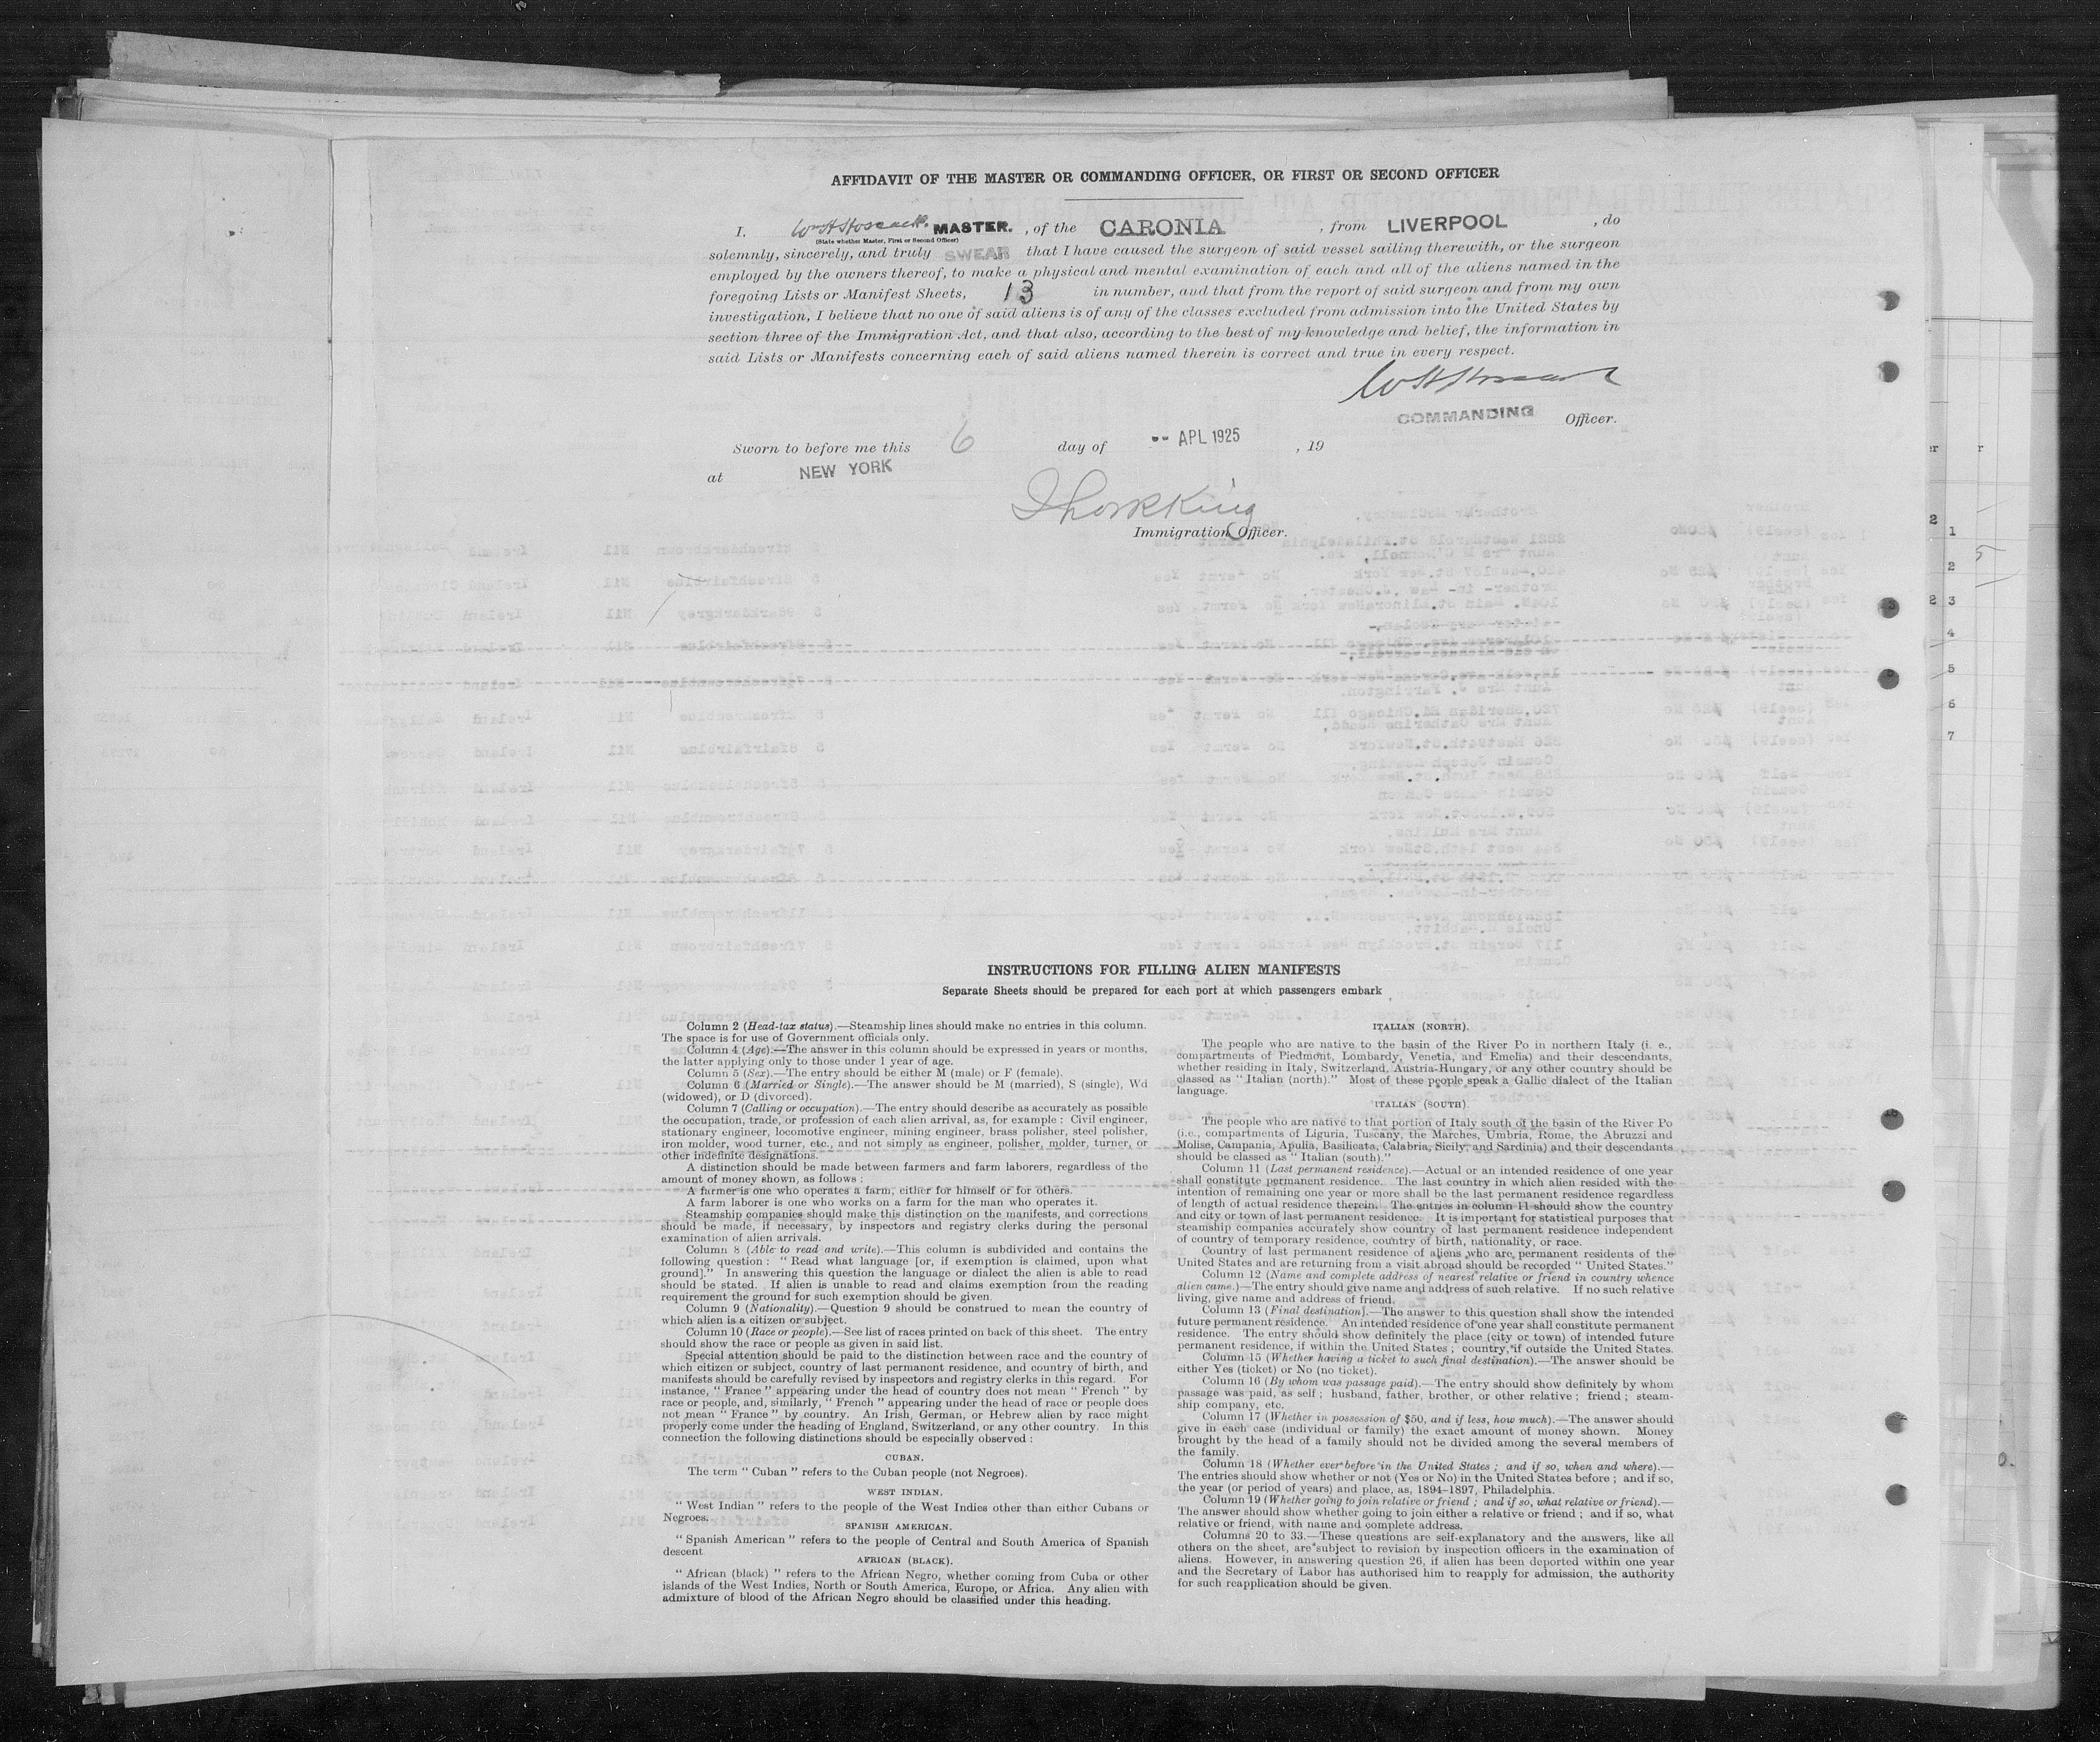 AFFIDAVIT OF THE MASTER OR COMMANDING OFFICER, OR FIRST OR SECOND OFFICER
I, MASTER. , of the CARONIA , from LIVERPOOL , do
(State whether Master, First or Second Officer)
solemnly, sincerely, and truly SWEAR that I have caused the surgeon of said vessel sailing therewith, or the surgeon
employed by the owners thereof, to make a physical and mental examination of each and all of the aliens named in the
foregoing Lists or Manifest Sheets, 13 in number, and that from the report of said surgeon and from my own
investigation, I believe that no one of said aliens is of any of the classes excluded from admission into the United States by
section three of the Immigration Act, and that also, according to the best of my knowledge and belief, the information in
said Lists or Manifests concerning each of said aliens named therein is correct and true in every respect.
COMMANDING Officer.
Sworn to before me this 6 day of -- APL 1925 , 19
at NEW YORK
Immigration Officer.
INSTRUCTIONS FOR FILLING ALIEN MANIFESTS
Separate Sheets should be prepared for each port at which passengers embark
Column 2 (Head-tax status).—Steamship lines should make no entries in this column.
The space is for use of Government officials only.
Column 4 (Age).—The answer in this column should be expressed in years or months,
the latter applying only to those under 1 year of age.
Column 5 (Sex).—The entry should be either M (male) or F (female).
Column 6 (Married or Single).—The answer should be M (married), S (single), Wd
(widowed), or D (divorced).
Column 7 (Calling or occupation).—The entry should describe as accurately as possible
the occupation, trade, or profession of each alien arrival, as, for example : Civil engineer,
stationary engineer, locomotive engineer, mining engineer, brass polisher, steel polisher,
iron molder, wood turner, etc., and not simply as engineer, polisher, molder, turner, or
other indefinite designations.
A distinction should be made between farmers and farm laborers, regardless of the
amount of money shown, as follows :
A farmer is one who operates a farm, either for himself or for others.
A farm laborer is one who works on a farm for the man who operates it.
Steamship companies should make this distinction on the manifests, and corrections
should be made, if necessary, by inspectors and registry clerks during the personal
examination of alien arrivals.
Column 8 (Able to read and write).—This column is subdivided and contains the
following question : " Read what language [or, if exemption is claimed, upon what
ground]." In answering this question the language or dialect the alien is able to read
should be stated. If alien is unable to read and claims exemption from the reading
requirement the ground for such exemption should be given.
Column 9 (Nationality).—Question 9 should be construed to mean the country of
which alien is a citizen or subject.
Column 10 (Race or people).—See list of races printed on back of this sheet. The entry
should show the race or people as given in said list.
Special attention should be paid to the distinction between race and the country of
which citizen or subject, country of last permanent residence, and country of birth, and
manifests should be carefully revised by inspectors and registry clerks in this regard. For
instance, " France " appearing under the head of country does not mean " French " by
race or people, and, similarly, " French " appearing under the head of race or people does
not mean " France " by country. An Irish, German, or Hebrew alien by race might
properly come under the heading of England, Switzerland, or any other country. In this
connection the following distinctions should be especially observed :
CUBAN.
The term " Cuban " refers to the Cuban people (not Negroes).
WEST INDIAN.
" West Indian " refers to the people of the West Indies other than either Cubans or
Negroes.
SPANISH AMERICAN.
" Spanish American " refers to the people of Central and South America of Spanish
descent
AFRICAN (BLACK).
" African (black) " refers to the African Negro, whether coming from Cuba or other
islands of the West Indies, North or South America, Europe, or Africa. Any alien with
admixture of blood of the African Negro should be classified under this heading.
ITALIAN (NORTH).
The people who are native to the basin of the River Po in northern Italy (i. e.,
compartments of Piedmont, Lombardy, Venetia, and Emelia) and their descendants,
whether residing in Italy, Switzerland, Austria-Hungary, or any other country should be
classed as " Italian (north)." Most of these people speak a Gallic dialect of the Italian
language.
ITALIAN (SOUTH).
The people who are native to that portion of Italy south of the basin of the River Po
(i.e., compartments of Liguria, Tuscany, the Marches, Umbria, Rome, the Abruzzi and
Molise, Campania, Apulia, Basilicata, Calabria, Sicily, and Sardinia) and their descendants
should be classed as " Italian (south)."
Column 11 (Last permanent residence).—Actual or an intended residence of one year
shall constitute permanent residence. The last country in which alien resided with the
intention of remaining one year or more shall be the last permanent residence regardless
of length of actual residence therein. The entries in column 11 should show the country
and city or town of last permanent residence. It is important for statistical purposes that
steamship companies accurately show country of last permanent residence independent
of country of temporary residence, country of birth, nationality, or race.
Country of last permanent residence of aliens who are permanent residents of the
United States and are returning from a visit abroad should be recorded " United States."
Column 12 (Name and complete address of nearest relative or friend in country whence
alien came.)—The entry should give name and address of such relative. If no such relative
living, give name and address of friend.
Column 13 (Final destination).—The answer to this question shall show the intended
future permanent residence. An intended residence of one year shall constitute permanent
residence. The entry should show definitely the place (city or town) of intended future
permanent residence, if within the United States ; country, if outside the United States.
Column 15 (Whether having a ticket to such final destination).—The answer should be
either Yes (ticket) or No (no ticket).
Column 16 (By whom was passage paid).—The entry should show definitely by whom
passage was paid, as self ; husband, father, brother, or other relative ; friend ; steam-
ship company, etc.
Column 17 (Whether in possession of $50, and if less, how much).—The answer should
give in each case (individual or family) the exact amount of money shown. Money
brought by the head of a family should not be divided among the several members of
the family.
Column 18 (Whether ever before in the United States ; and if so, when and where).—
The entries should show whether or not (Yes or No) in the United States before ; and if so,
the year (or period of years) and place, as, 1894–1897, Philadelphia.
Column 19 (Whether going to join relative or friend ; and if so, what relative or friend).—
The answer should show whether going to join either a relative or friend ; and if so, what
relative or friend, with name and complete address.
Columns 20 to 33.—These questions are self-explanatory and the answers, like all
others on the sheet, are subject to revision by inspection officers in the examination of
aliens. However, in answering question 26, if alien has been deported within one year
and the Secretary of Labor has authorised him to reapply for admission, the authority
for such reapplication should be given.
1
2
3
4
5
6
7